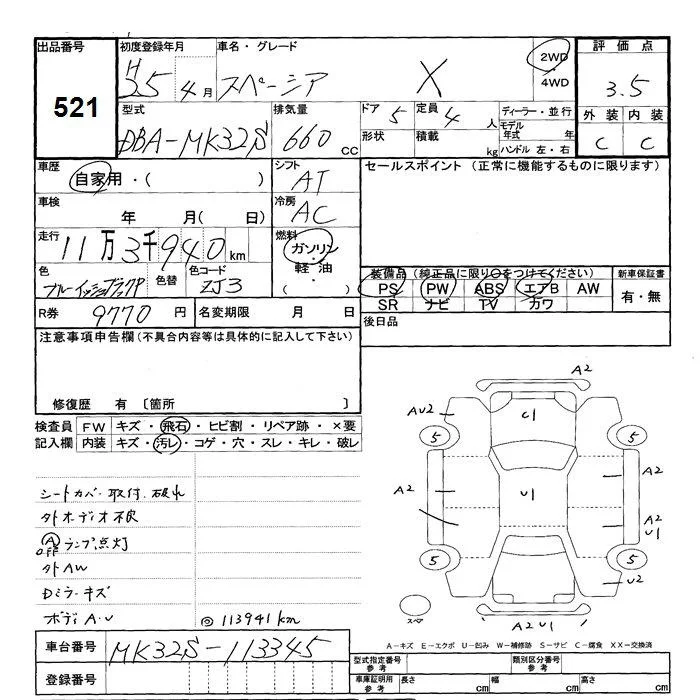 出品番号
521
初度登録年月
H25 4月
車名・グレード
スペーシア X
2WD
・
4WD
評価点
3.5
外装 内装
C C
型式
DBA-MK32S
排気量
660 CC
ドア 5
定員 4 人
形状
積載 kg
ディーラー・並行
モデル年式 年
ハンドル 左・右
車歴
自家用・( )
シフト
AT
セールスポイント (正常に機能するものに限ります)
車検
年 月( 日)
冷房
AC
走行
11万3千940km
燃料
ガソリン
・
軽油
・
( )
色
ブルーイッシュブラックP
色替
色コード
ZJ3
装備品(純正品に限り○をつけてください)
PS PW ABS エアB AW
SR ナビ TV カワ
新車保証書
有・無
R券 9770円
名変期限 月 日
後日品
注意事項申告欄(不具合内容等は具体的に記入して下さい)
修復歴 有 〔箇所 〕
検査員
記入欄
FW キズ・飛石・ヒビ割・リペア跡・×要
内装 キズ・汚レ・コゲ・穴・スレ・キレ・破レ
シートカバー取付、破れ
外オーディオ不良
A OFFランプ点灯
外AW
Dミラーキズ
ボディA・U
◎113941km
A2
AU2
C1
5
5
A2
U1
A2
A2
U1
5
5
U2
スペア
A2 U1
A-キズ E-エクボ U-凹み W-補修跡 S-サビ C-腐食 XX-交換済
車台番号
MK32S-113345
登録番号
型式指定番号
参考
類別区分番号
参考
車庫証明用
参考
長さ cm
幅 cm
高さ cm